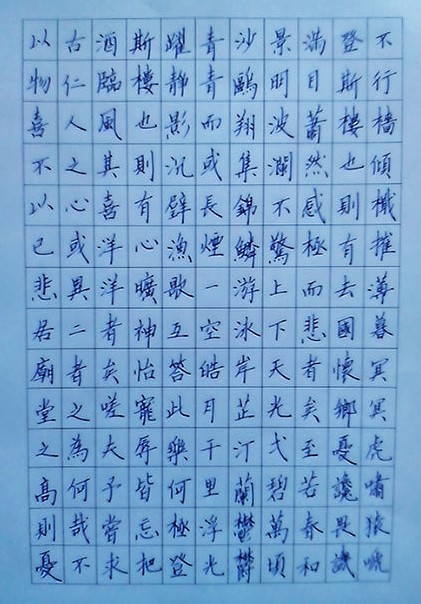 不行檣傾檝摧薄暮冥冥虎嘯猿啼
登斯樓也則有去國懷鄉憂讒畏譏
滿目蕭然感極而悲者矣至若春和
景明波瀾不驚上下天光弌碧萬頃
沙鷗翔集錦鱗游泳岸芷汀蘭鬱鬱
青青而或長煙一空皓月千里浮光
躍靜影沉璧漁歌互答此樂何極登
斯樓也則有心曠神怡寵辱皆忘把
酒臨風其喜洋洋者矣嗟夫予嘗求
古仁人之心或異二者之為何哉不
以物喜不以己悲居廟堂之高則憂